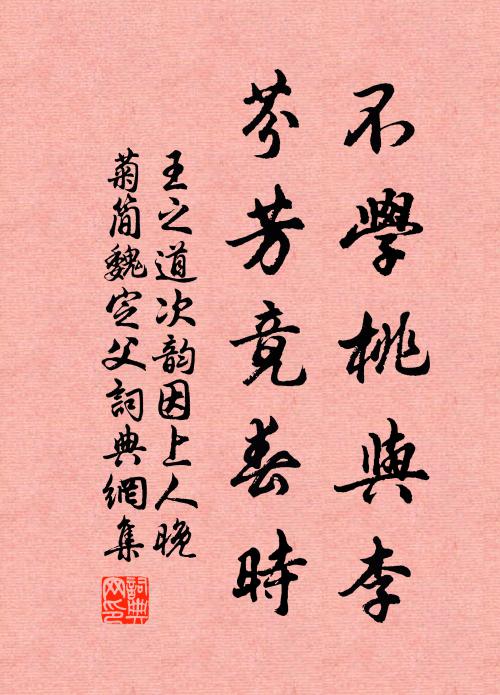 不學桃與李
芬芳竟春時
王之道次韵因上人晚
菊簡魏定父詞典網集
詞典